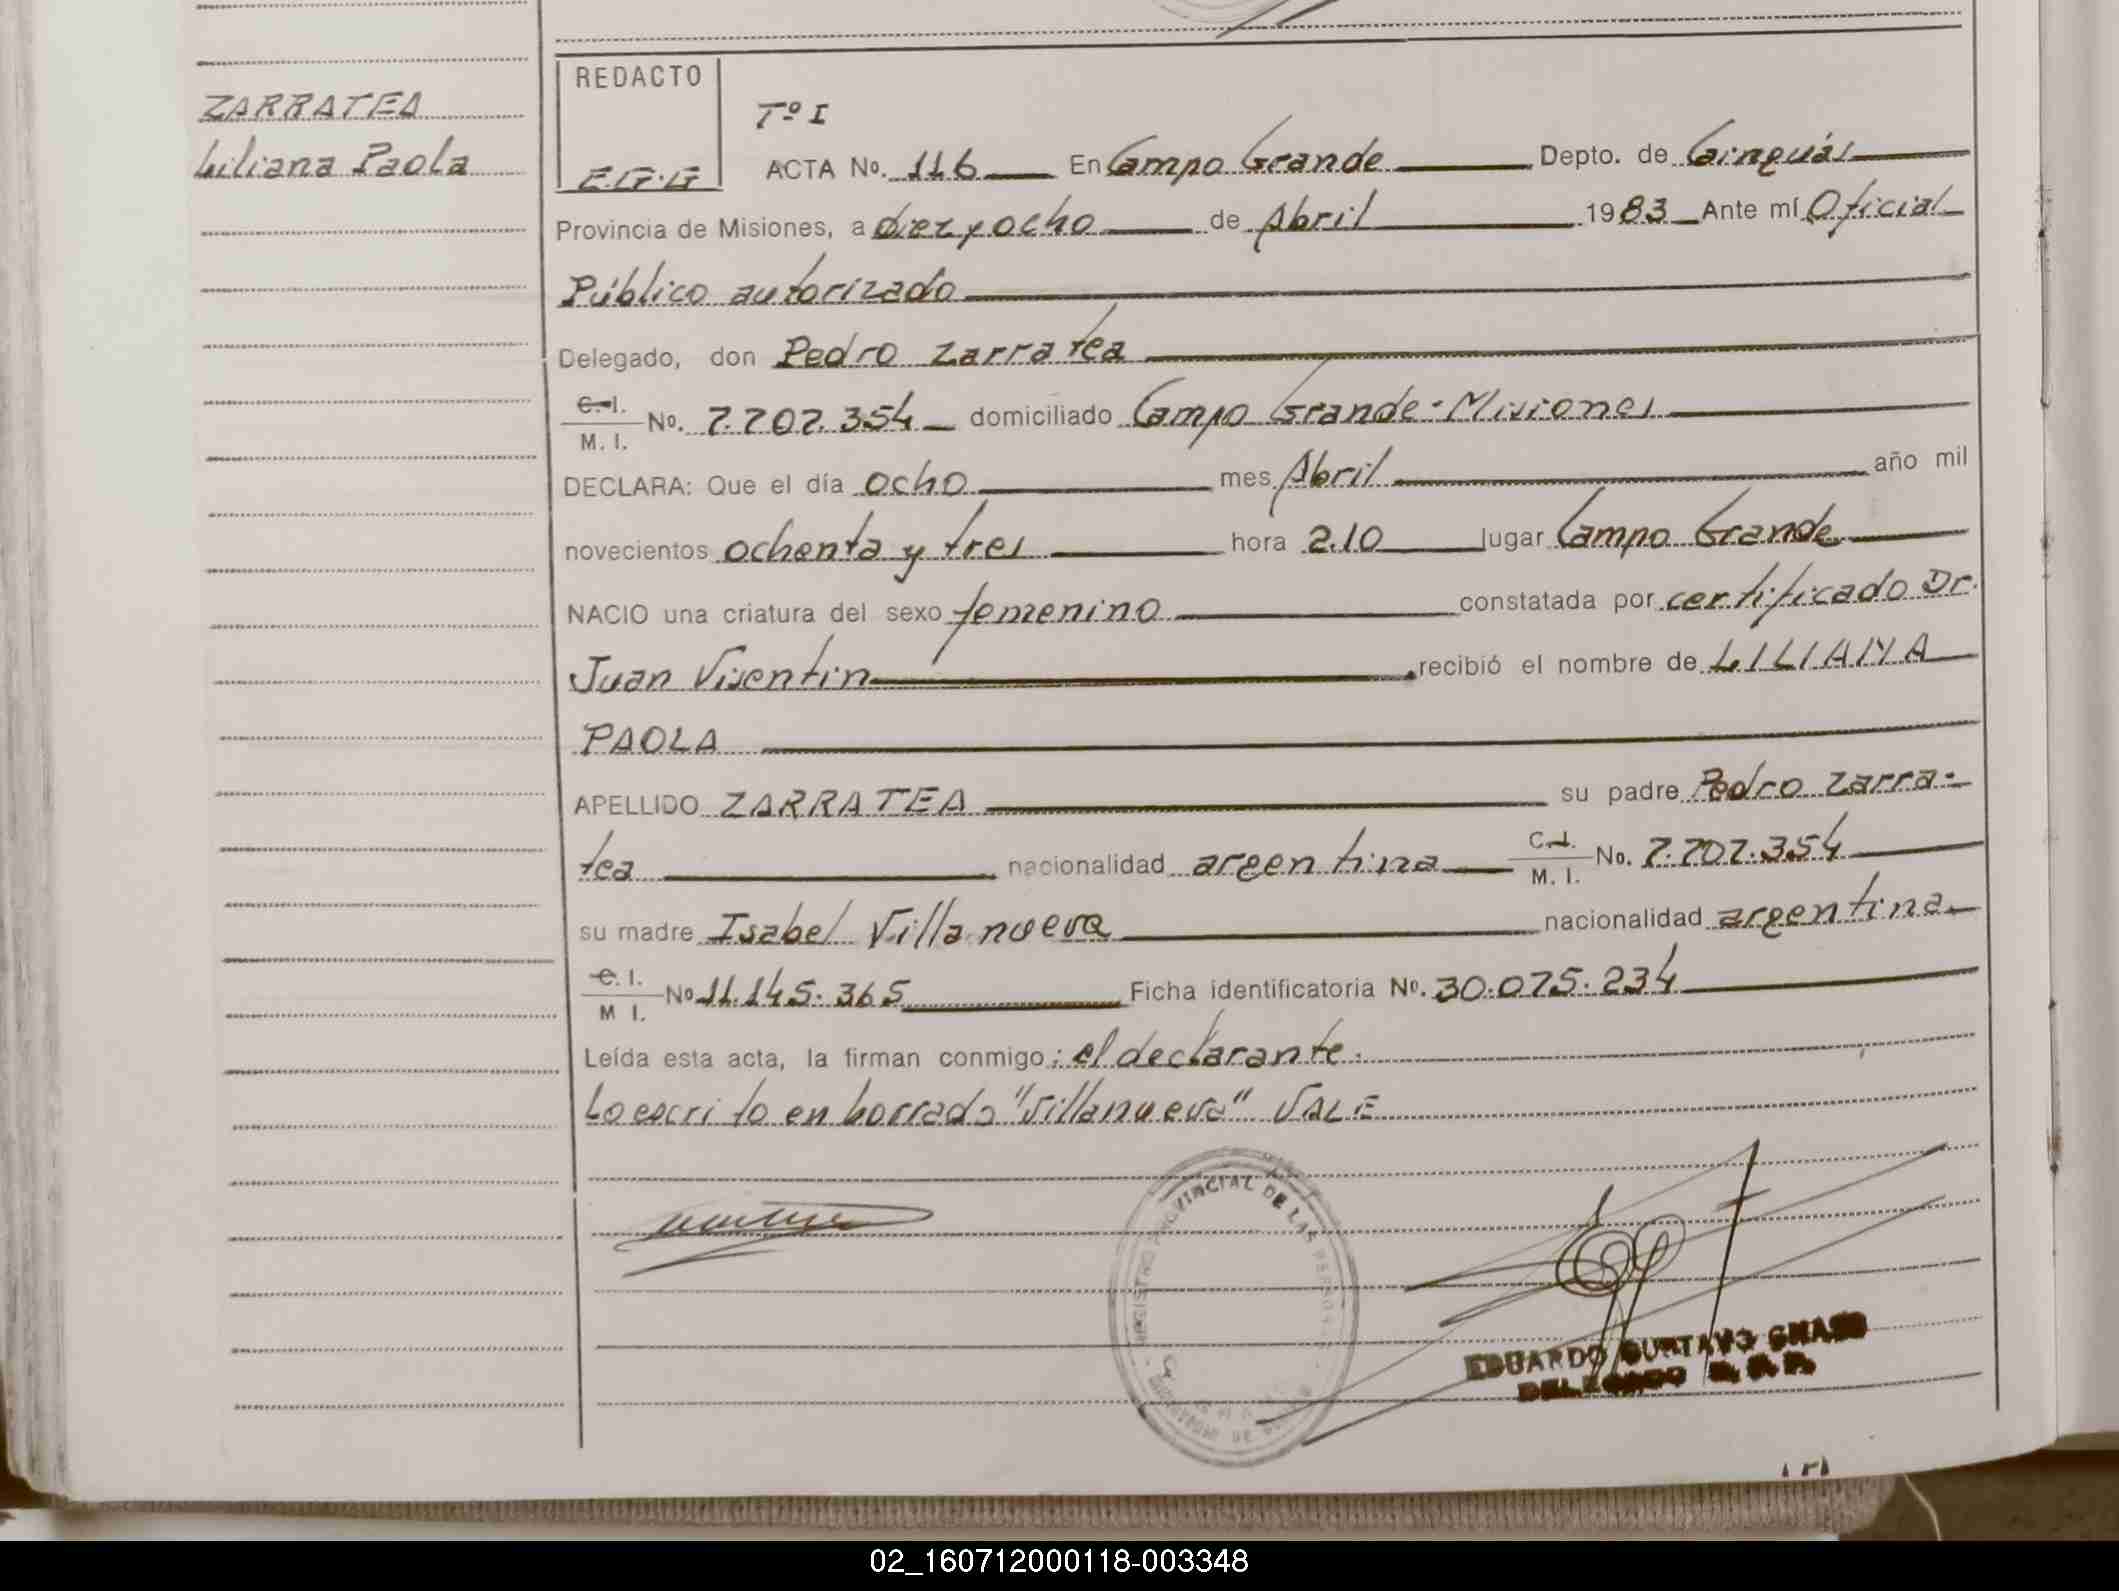 ZARRATEA
Liliana Paola
REDACTO
E.G.G
Tº I
ACTA No. 116 En Campo Grande Depto. de Cainguás
Provincia de Misiones, a diez y ocho de Abril 1983 Ante mí Oficial
Público autorizado
Delegado, don Pedro Zarratea
C.I. M. I. No. 7.707.354 domiciliado Campo Grande - Misiones
DECLARA: Que el día ocho mes Abril año mil
novecientos ochenta y tres hora 2.10 lugar Campo Grande
NACIO una criatura del sexo femenino constatada por certificado Dr.
Juan Visentin recibió el nombre de LILIANA
PAOLA
APELLIDO ZARRATEA su padre Pedro Zarra-
tea nacionalidad argentina C.I. M. I. No. 7.707.354
su madre Isabel Villanueva nacionalidad argentina
C.I. M I. No 11.145.365 Ficha identificatoria No. 30.075.234
Leída esta acta, la firman conmigo: el declarante.
Lo escrito en borrado "Villanueva" VALE
REGISTRO PROVINCIAL DE LAS PERSONAS
EDUARDO GUSTAVO
DELEGADO R. P. P.
02_160712000118-003348